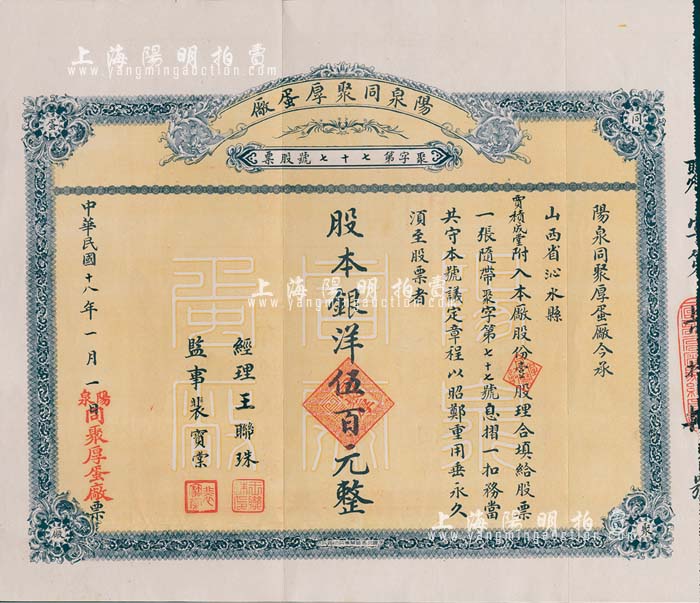 上海陽明拍賣
www.yangmingauction.com
陽泉同聚厚蛋廠
聚字第七十七號股票
陽泉同聚厚蛋廠今承
山西省沁水縣
賈積成堂附入本廠股份壹股理合填給股票
一張隨帶聚字第七十七號息摺一扣務當
共守本號議定章程以昭鄭重用垂永久
須至股票者
股本銀洋伍百元整
經理王聯珠
監事裴寶棠
中華民國十八年一月一日
陽泉同聚厚蛋廠票
上海陽明拍賣
www.yangmingauction.com
上海陽明拍賣
www.yangmingauction.com